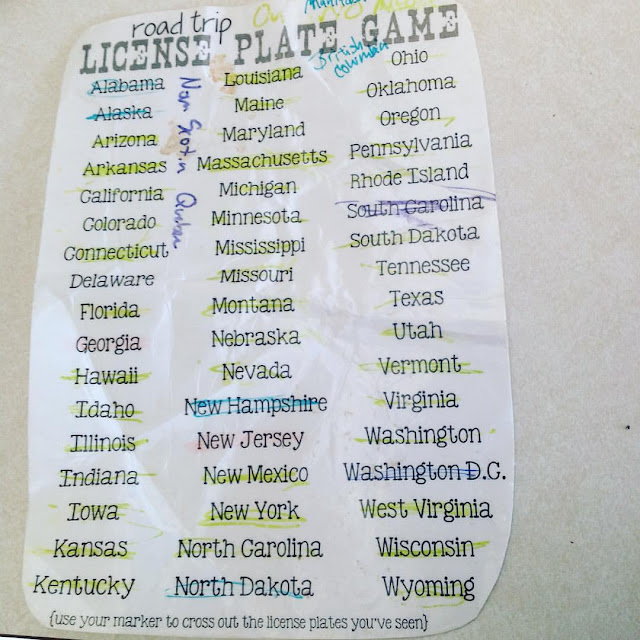 road trip
LICENSE PLATE GAME
British
Alabama
Alaska
Arizona
Arkansas
California
Colorado
Connecticut
Delaware
Florida
Georgia
Hawaii
Idaho
Illinois
Indiana
Iowa
Kansas
Kentucky
Louisiana
Maine
Maryland
Massachusetts
Michigan
Minnesota
Mississippi
Missouri
Montana
Nebraska
Nevada
New Hampshire
New Jersey
New Mexico
New York
North Carolina
North Dakota
Ohio
Oklahoma
Oregon
Pennsylvania
Rhode Island
South Carolina
South Dakota
Tennessee
Texas
Utah
Vermont
Virginia
Washington
Washington D.C.
West Virginia
Wisconsin
Wyoming
{use your marker to cross out the license plates you've seen}